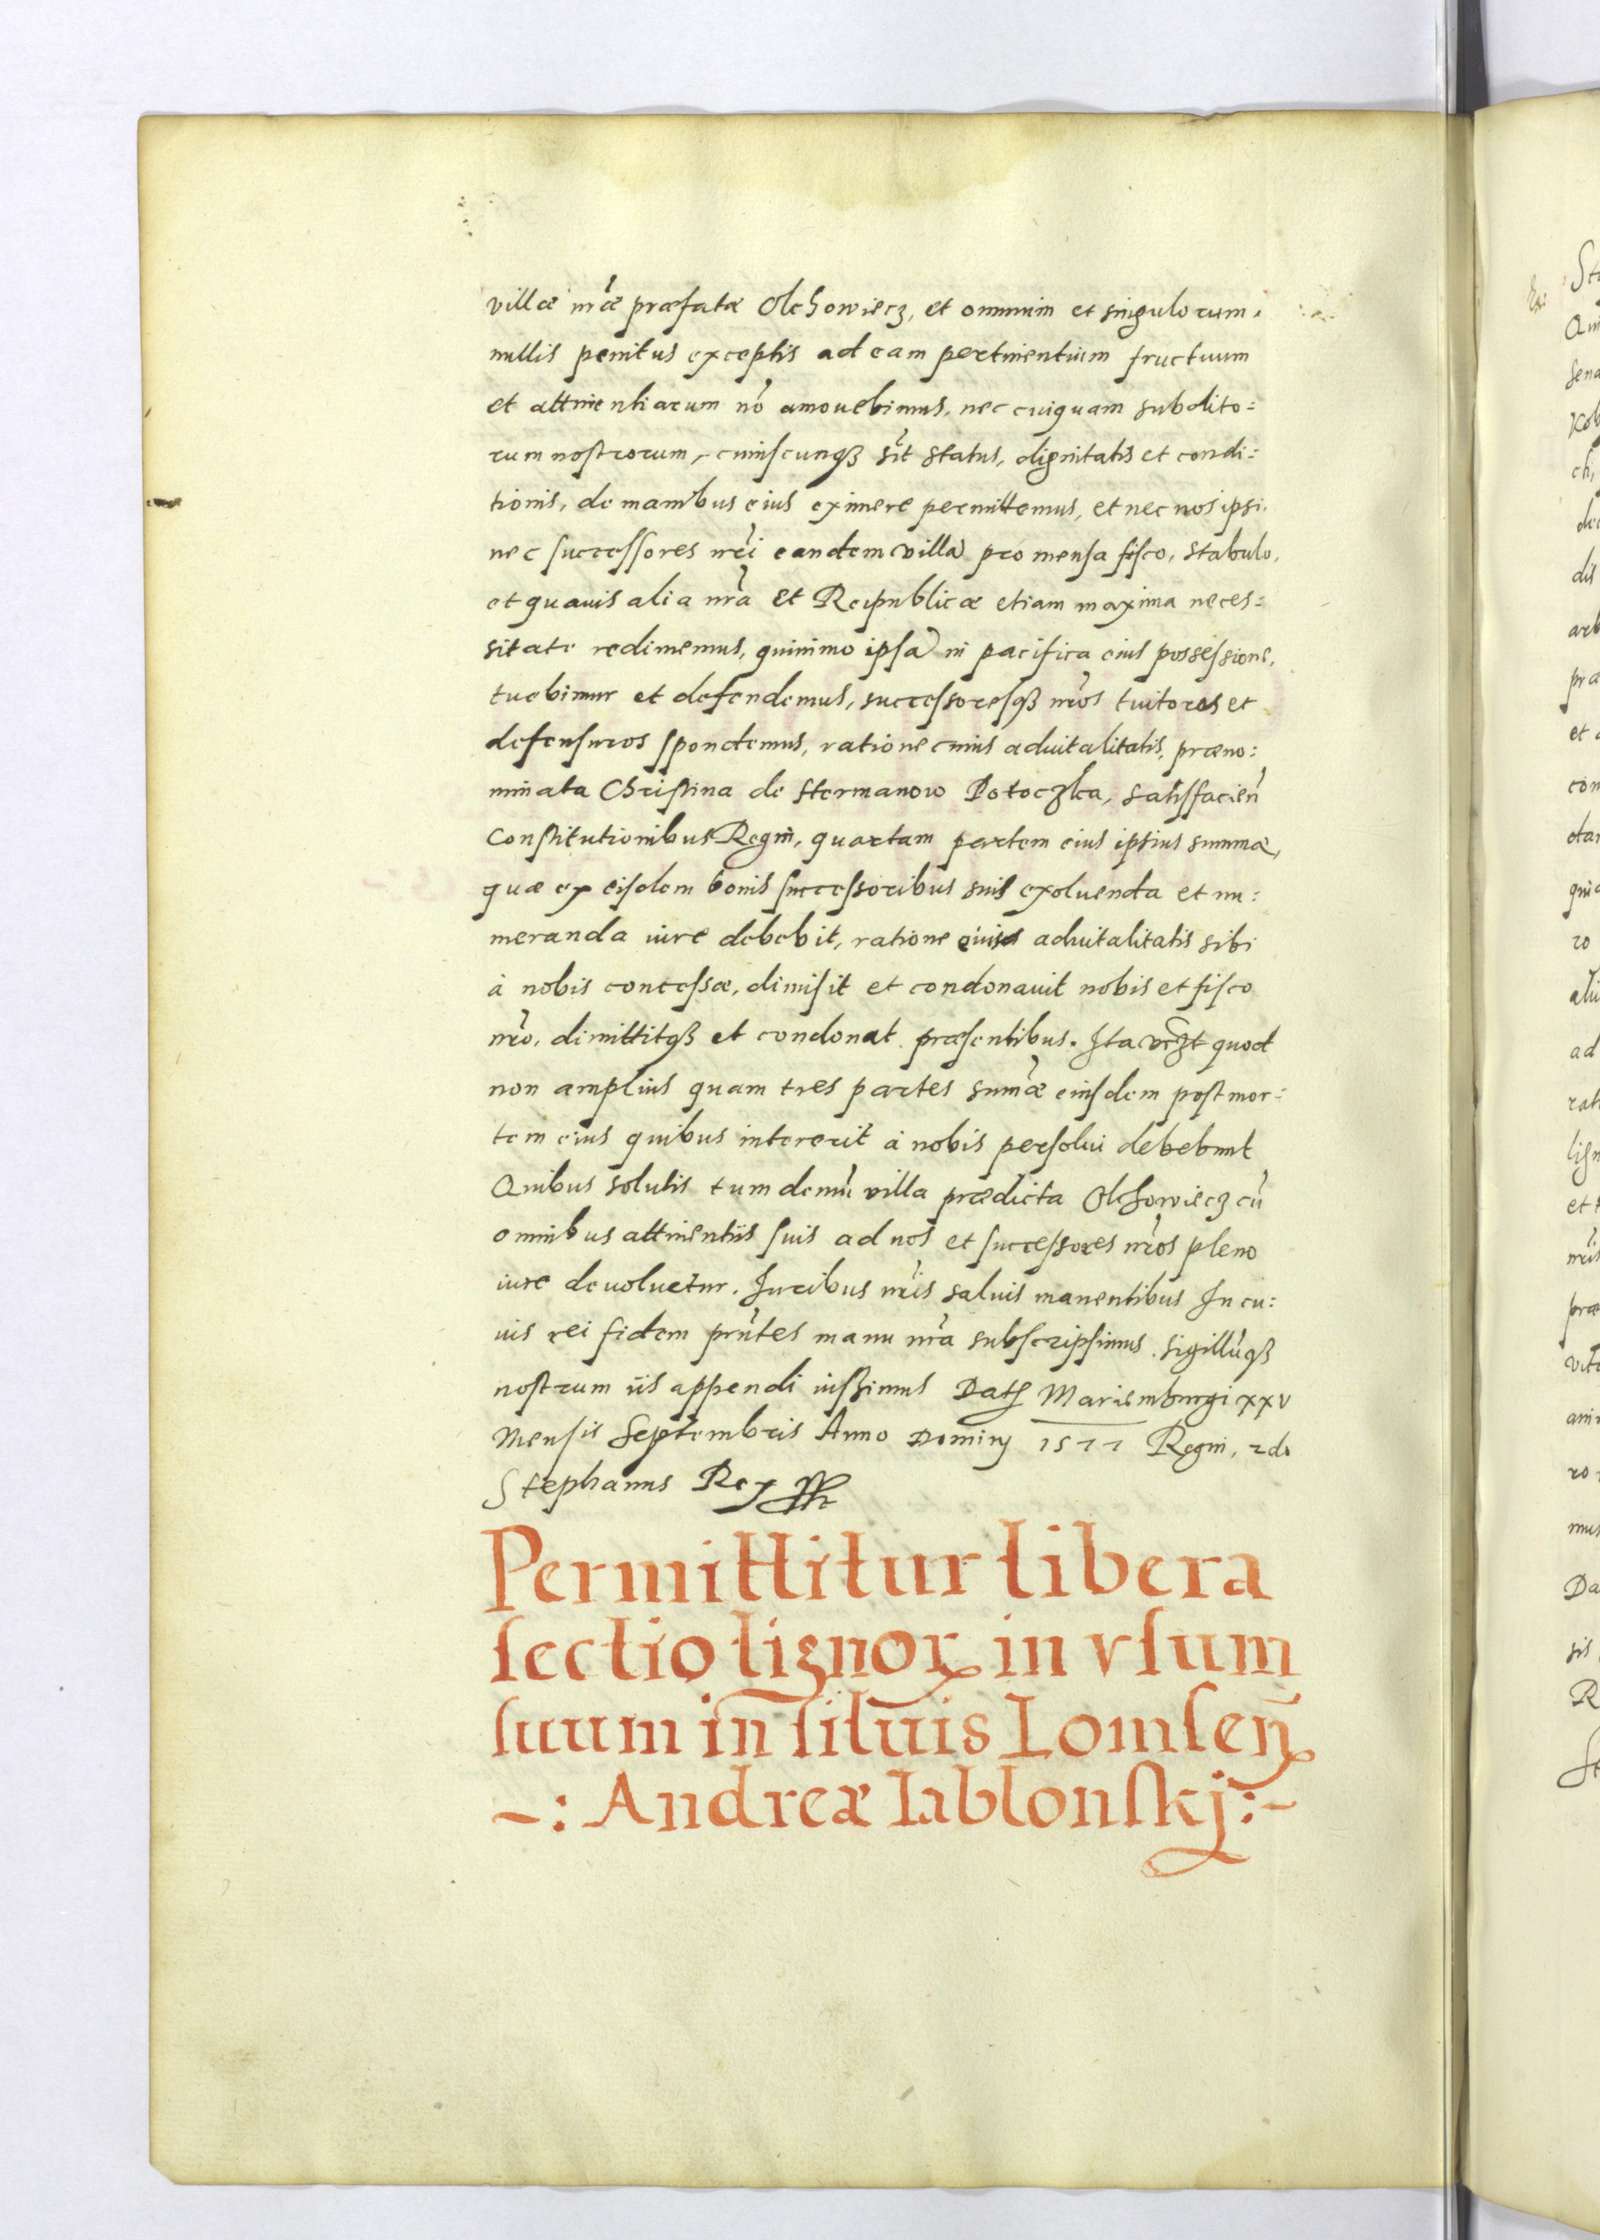 villæ nr̃æ præfatæ Olchowiecz, et omnium et singulorum,
nullis penitus exceptis ad eam pertinentium fructuum
et attinentiarum nõ amouebimus, nec cuiquam subdito:
rum nostrorum, cuiuscunqꝫ sit status, dignitatis et condi:
tionis, de manibus eius eximere permittemus, et nec nos ipsi,
nec successores nr̃i eandem villã pro mensa fisco, stabulo,
et quauis alia nr̃a et Reipublicæ etiam maxima neces:
sitate redimemus, quinimo ipsã in pacifica eius possessione,
tuebimur et defendemus, successoresqꝫ nr̃os tuitores et
defensuros spondemus, ratione cuius aduitalitatis, præno:
minata Christina de Stermanow Potoczka, satisfacieñ
Constitutionibus Regni, quartam partem eius ipsius summæ,
quæ ex eisdem bonis successoribus suis exoluenda et nu:
meranda iure debebit, ratione eius aduitalitatis sibi
à nobis concessæ, dimisit et condonauit nobis et fisco
nr̃o, dimittitqꝫ et condonat præsentibus. Ita vꝫt quod
non amplius quam tres partes sum̃æ eiusdem post mor:
tem eius quibus intererit à nobis persolui debebunt
Quibus solutis tum demũ villa prædicta Olchowiecz cũ
omnibus attinentiis suis ad nos et successores nr̃os pleno
iure deuoluetur. Iuribus nr̃is saluis manentibus In cu:
uis rei fidem prñtes manu nr̃a subscripsimus. sigillũqꝫ
nostrum iis appendi iussimus Datꝭ Mariemburgi xxv
Mensis Septembris Anno Dominj 1577 Regni, 2do
Stephanus Rex
Permittitur libera
sectio lignoꝝ in vsum
suum in siluis Lomseñ
-: Andreæ Iablonskj:-